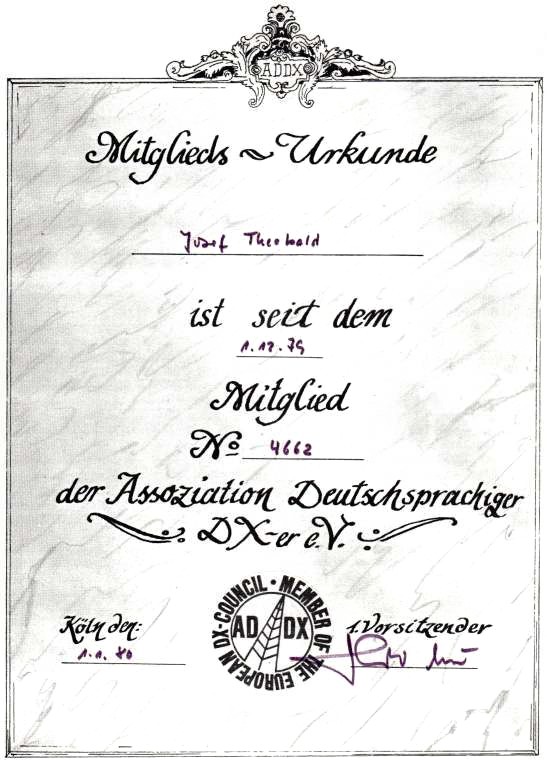 ADDX
Mitglieds ~ Urkunde
Josef Theobald
ist seit dem
1.12.79
Mitglied
No 4662
der Assoziation Deutschsprachiger
DX-er e.V.
Köln den:
1.1.80
AD DX
MEMBER OF THE EUROPEAN DX-COUNCIL •
1. Vorsitzender